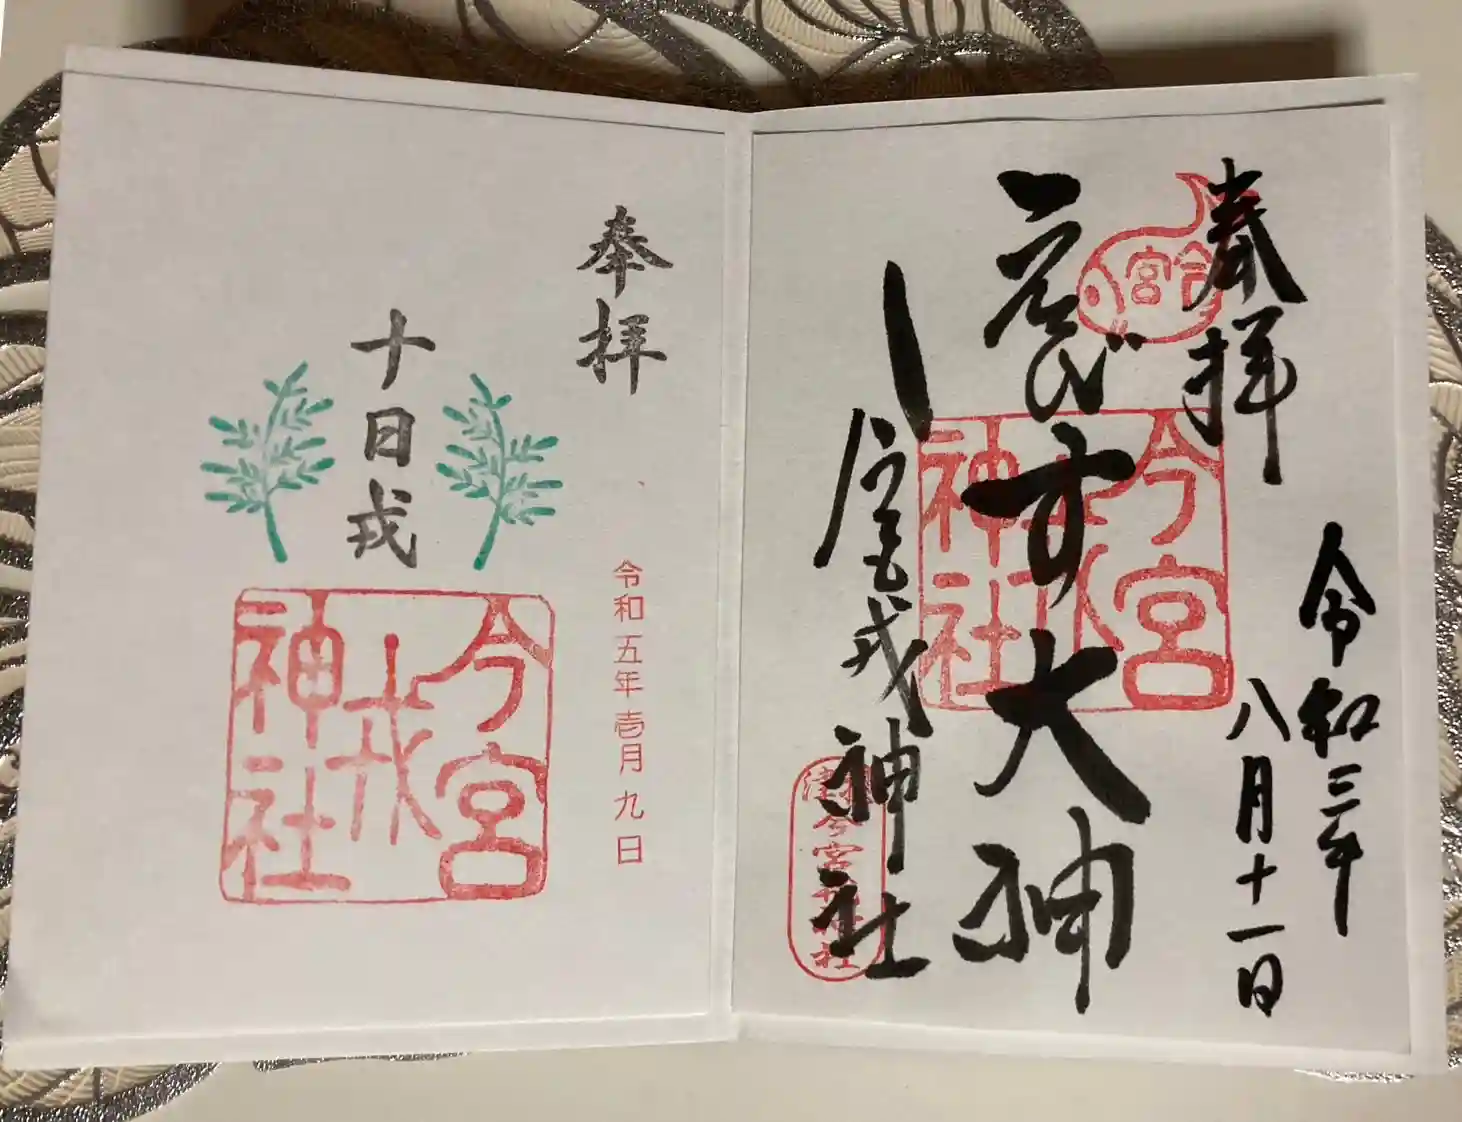 奉拝
令和三年
八月十一日
今宮
えびす大神
今宮戎神社
今宮戎神社
今宮戎神社
奉拝
令和五年壱月九日
十日戎
今宮戎神社